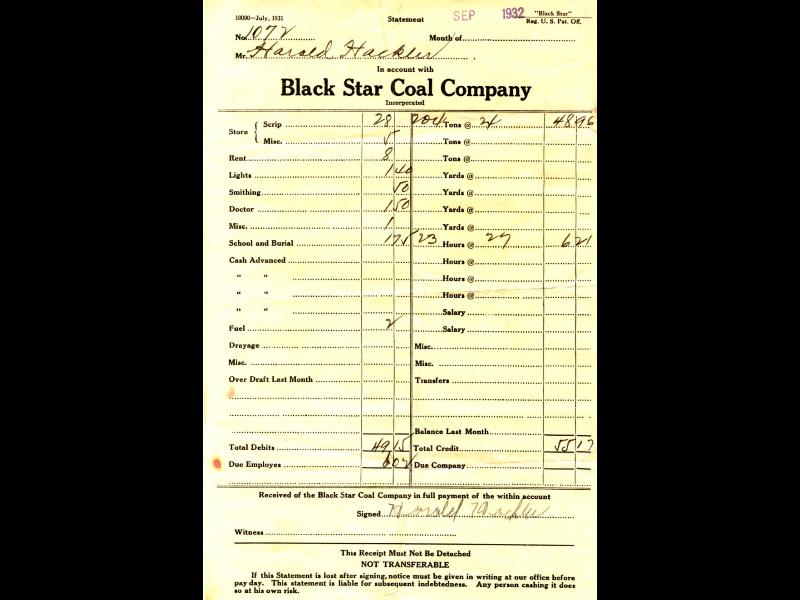 10000—July, 1931 Statement SEP 1932 "Black Star"
Reg. U. S. Pat. Off.
No. 1072 Month of
Mr. Harold Hackler
In account with
Black Star Coal Company
Incorporated
Store { Scrip 28 204 Tons @ 24 48 96
Misc. 5 Tons @
Rent 8 Tons @
Lights 1 40 Yards @
Smithing 50 Yards @
Doctor 1 50 Yards @
Misc. 1 Yards @
School and Burial 1 75 23 Hours @ 27 6 21
Cash Advanced Hours @
" " Hours @
" " Hours @
" " Salary
Fuel 2 Salary
Drayage Misc.
Misc. Misc.
Over Draft Last Month Transfers
Balance Last Month
Total Debits 49 15 Total Credit 55 17
Due Employe 6 02 Due Company
Received of the Black Star Coal Company in full payment of the within account
Signed Harold Hackler
Witness
This Receipt Must Not Be Detached
NOT TRANSFERABLE
If this Statement is lost after signing, notice must be given in writing at our office before
pay day. This statement is liable for subsequent indebtedness. Any person cashing it does
so at his own risk.